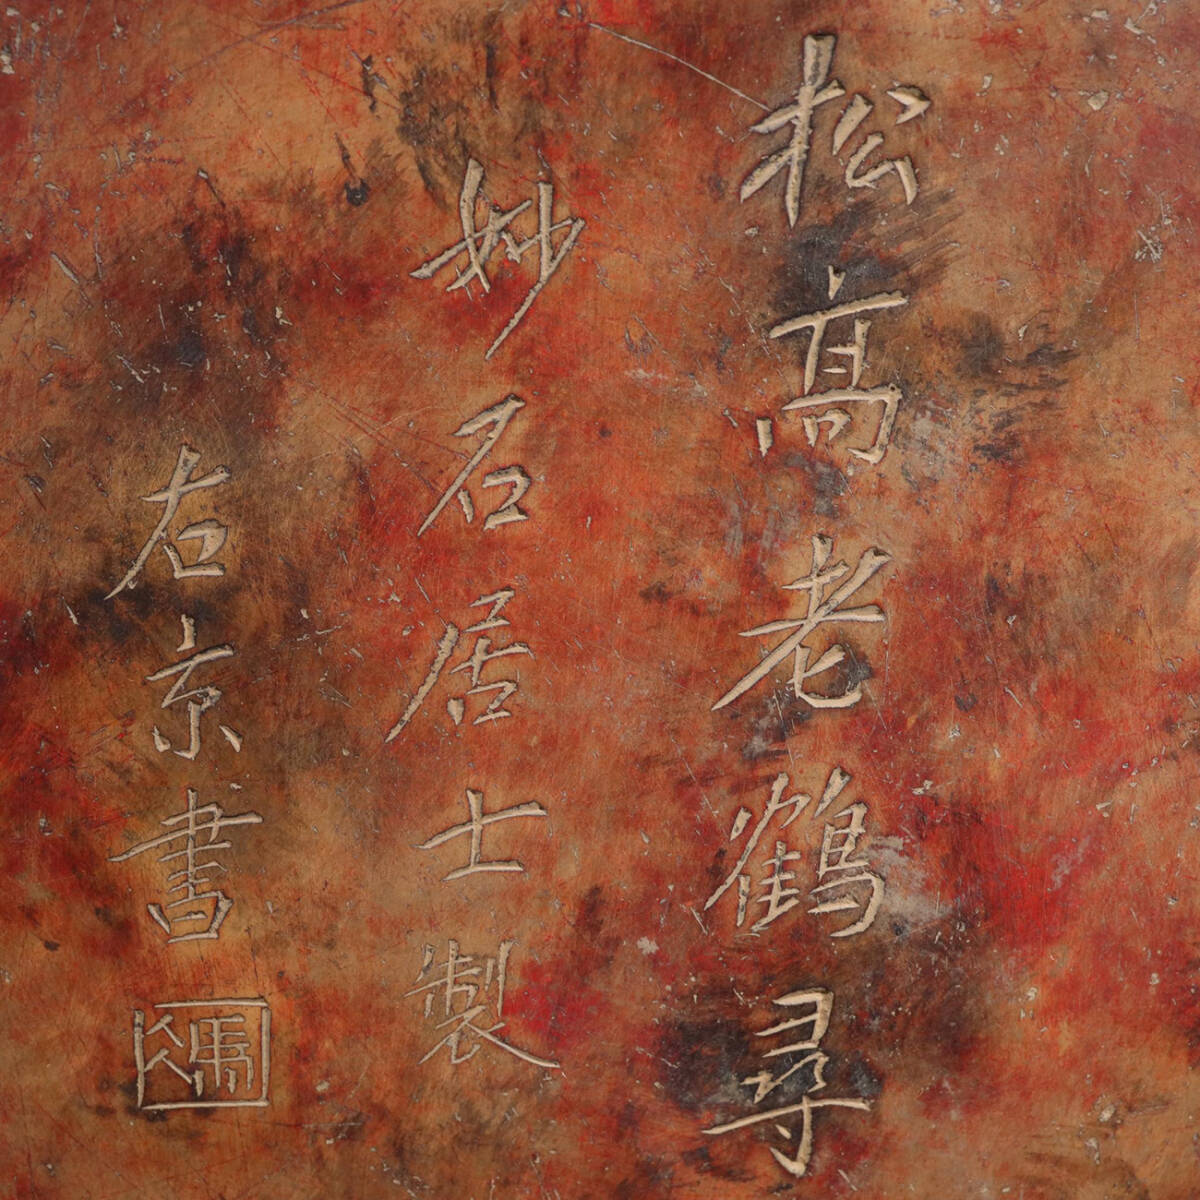 松高老鶴尋
妙石居士製
右京書